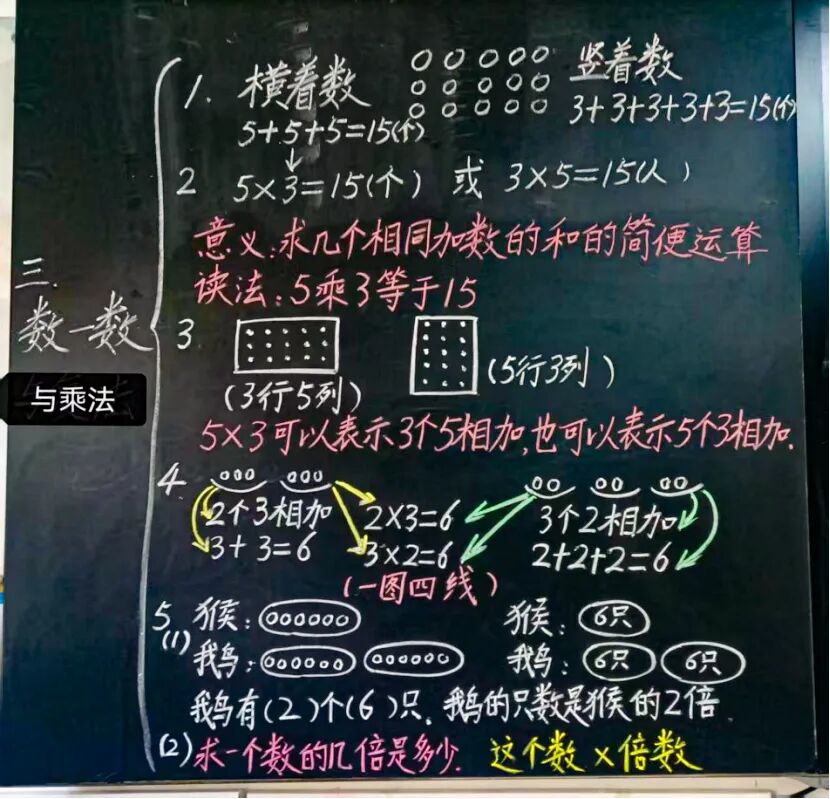 三.
数一数
与乘法
1. 横着数 竖着数
5+5+5=15(个) 3+3+3+3+3=15(个)
2 5×3=15(个) 或 3×5=15(人)
意义:求几个相同加数的和的简便运算
读法:5乘3等于15
3
(3行5列) (5行3列)
5×3可以表示3个5相加,也可以表示5个3相加.
4
2个3相加 2×3=6 3个2相加
3+3=6 3×2=6 2+2+2=6
(一图四线)
5 猴: 猴: 6只
(1) 我鸟: 我鸟: 6只 6只
我鸟有(2)个(6)只. 我鸟的只数是猴的2倍.
(2) 求一个数的几倍是多少. 这个数×倍数